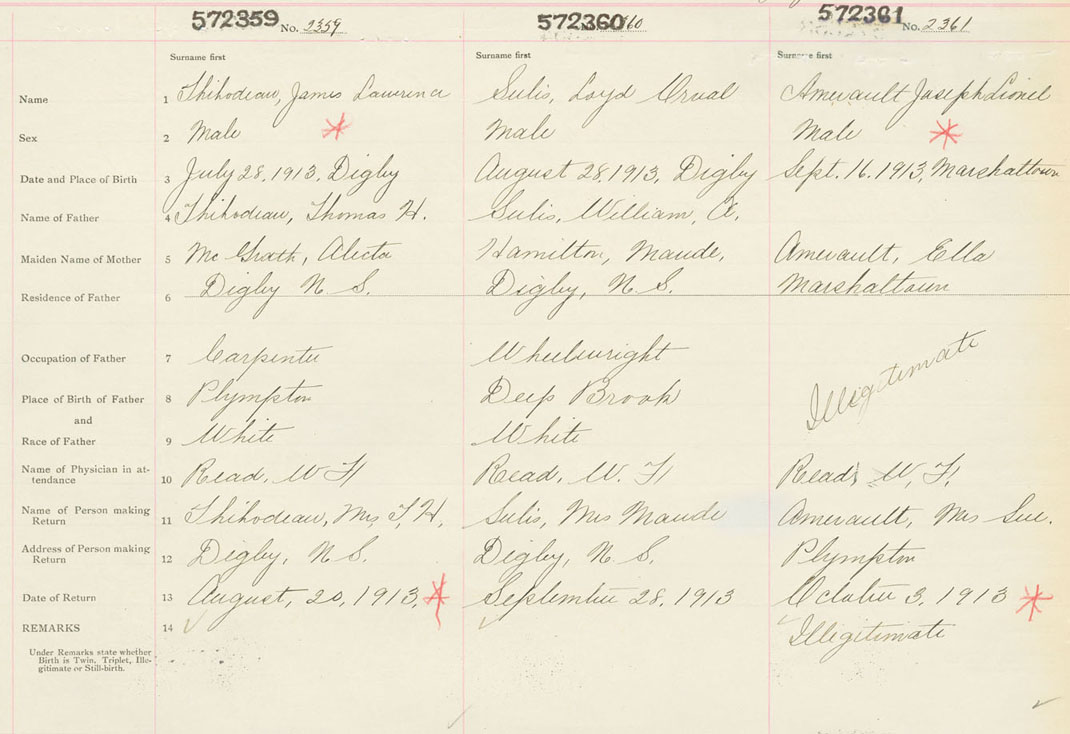 572359 No. 2359 572360 No. 2360 572361 No. 2361
Surname first Surname first Surname first
Name 1 Thibodeau, James Lawrence Sulis, Loyd Orval Amerault Joseph Lionel
Sex 2 Male Male Male
Date and Place of Birth 3 July 28, 1913, Digby August 28, 1913, Digby Sept. 16. 1913, Marshaltown
Name of Father 4 Thibodeau, Thomas H. Sulis, William, A.
Maiden Name of Mother 5 Mc Grath, Alecta Hamilton, Maude, Amerault, Ella
Residence of Father 6 Digby N. S. Digby, N. S. Marshaltown
Occupation of Father 7 Carpenter Wheelwright Illigitimate
Place of Birth of Father 8 Plympton Deep Brook
and
Race of Father 9 White White
Name of Physician in at-
tendance 10 Read, W F Read, W. F Read, W, F,
Name of Person making
Return 11 Thibodeau, Mrs T. H, Sulis, Mrs Maude Amerault, Mrs Sue.
Address of Person making
Return 12 Digby, N. S. Digby, N. S. Plympton
Date of Return 13 August, 20, 1913, September 28, 1913 October 3, 1913
REMARKS 14 Illigitimate
Under Remarks state whether
Birth is Twin, Triplet, Ille-
gitimate or Still-birth.